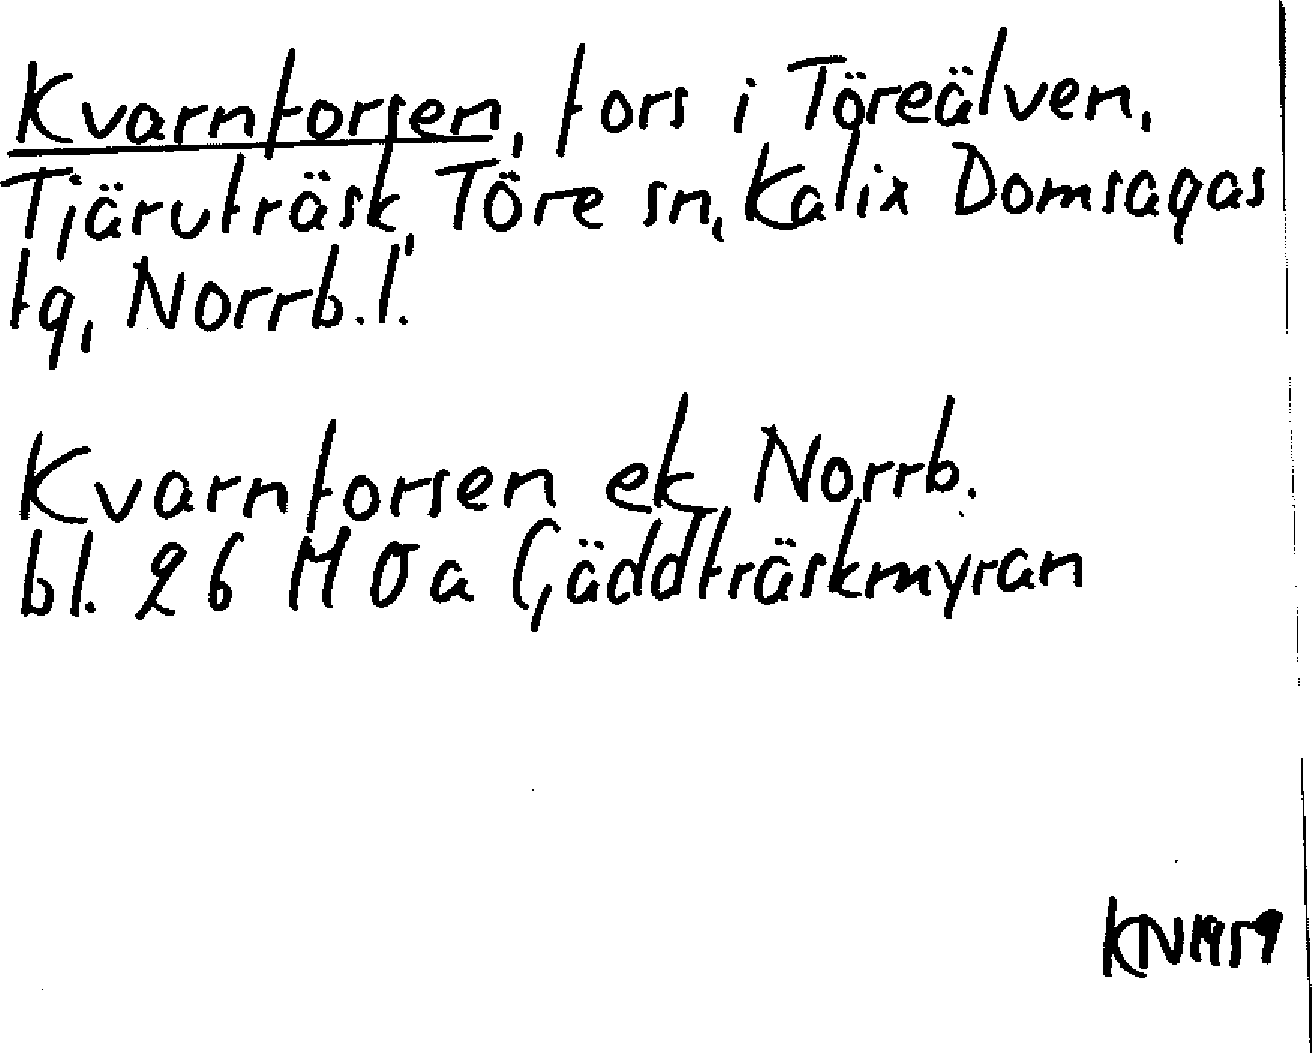 Kvarnforsen, fors i Töreälven,
Tjäruträsk, Töre sn, Kalix Domsagas
tg, Norrb. l.
Kvarnforsen ek Norrb.
bl. 26 M Ö a Gäddträskmyran
KN 1959